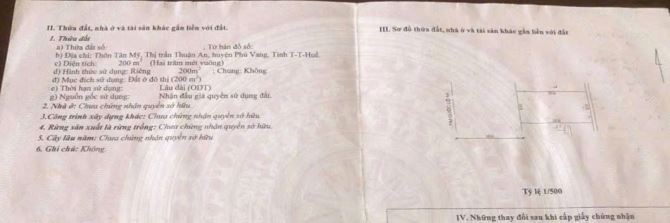 II. Thửa đất, nhà ở và tài sản khác gắn liền với đất.
1. Thửa đất
a) Thửa đất số: ; Tờ bản đồ số:
b) Địa chỉ: Thôn Tân Mỹ, Thị trấn Thuận An, huyện Phú Vang, Tỉnh T-T-Huế.
c) Diện tích: 200 m² (Hai trăm mét vuông)
d) Hình thức sử dụng: Riêng 200m² ; Chung: Không
đ) Mục đích sử dụng: Đất ở đô thị (200 m²)
e) Thời hạn sử dụng: Lâu dài (ODT)
g) Nguồn gốc sử dụng: Nhận đấu giá quyền sử dụng đất.
2. Nhà ở: Chưa chứng nhận quyền sở hữu
3.Công trình xây dựng khác: Chưa chứng nhận quyền sở hữu
4. Rừng sản xuất là rừng trồng: Chưa chứng nhận quyền sở hữu.
5. Cây lâu năm: Chưa chứng nhận quyền sở hữu
6. Ghi chú: Không.
III. Sơ đồ thửa đất, nhà ở và tài sản khác gắn liền với đất
Tỷ lệ 1/500
IV. Những thay đổi sau khi cấp giấy chứng nhận